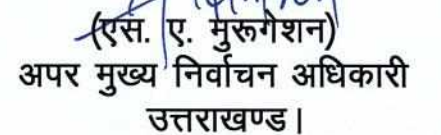 (एस. ए. मुरूगेशन)
अपर मुख्य निर्वाचन अधिकारी
उत्तराखण्ड।